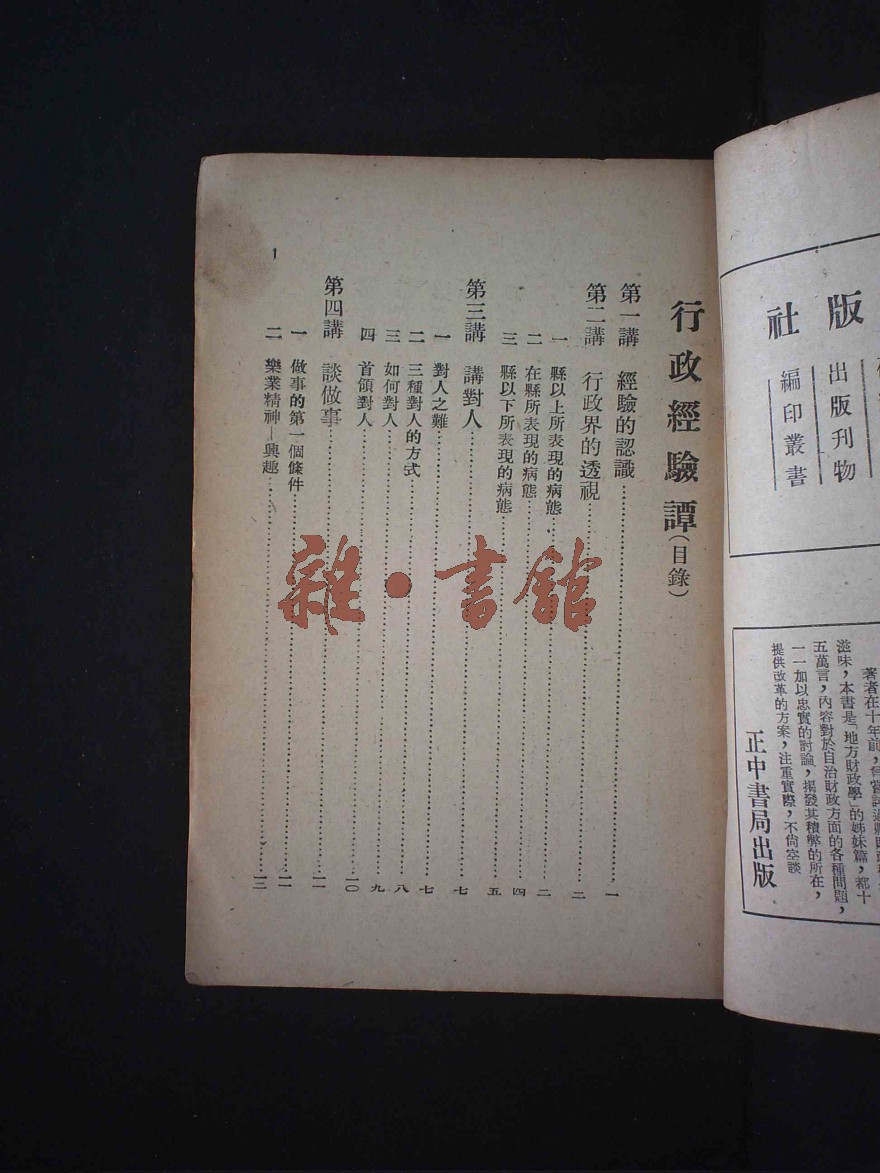 版社
出版刊物
編印叢書
滋味，本書是「地方財政學」的姊妹篇，都十
五萬言，內容對於自治財政方面的各種問題，
一一加以忠實的討論，揭發其積弊的所在，
提供改革的方案，注重實際，不尙空談
正中書局出版
行政經驗譚（目錄）
第一講 經驗的認識……一
第二講 行政界的透視……二
一 縣以上所表現的病態……二
二 在縣所表現的病態……四
三 縣以下所表現的病態……五
第三講 講對人……七
一 對人之難……七
二 三種對人的方式……八
三 如何對人……九
四 首領對人……一〇
第四講 談做事……一一
一 做事的第一個條件……一一
二 樂業精神—興趣……一三
1
雜·書館